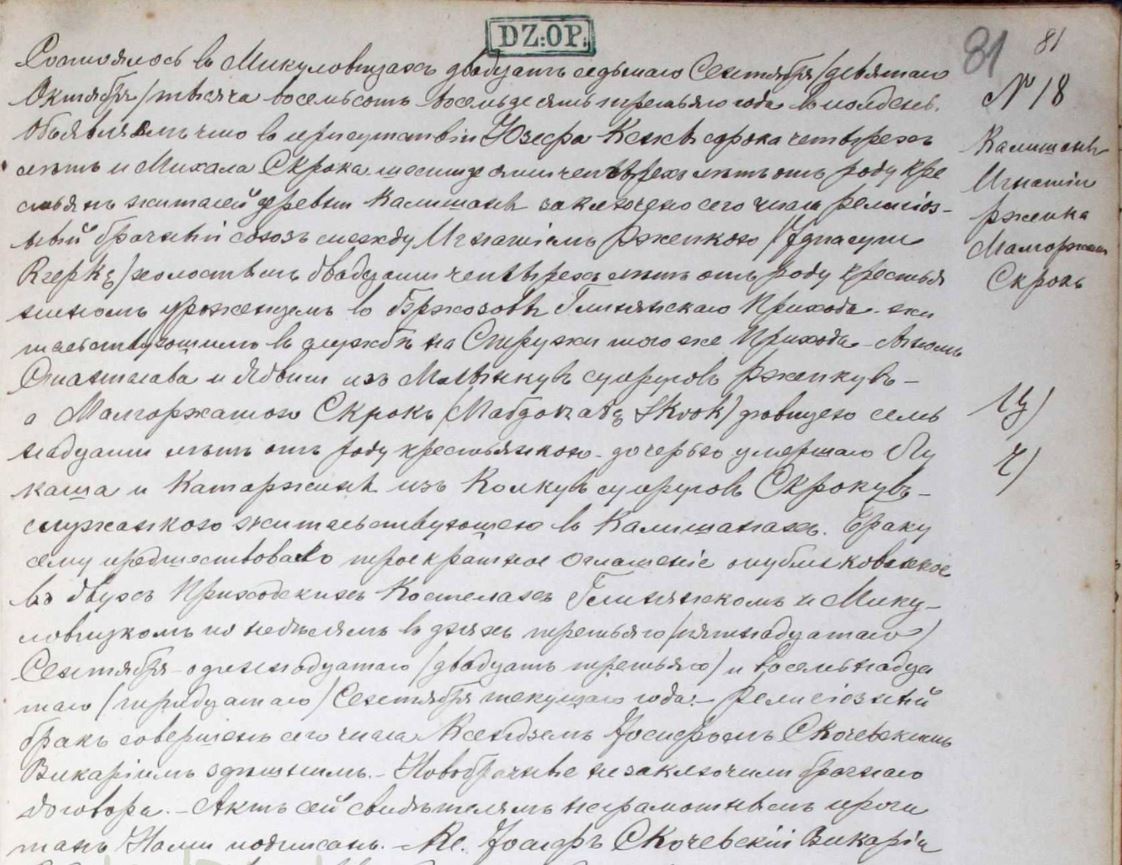 DZ:OP.
81 81
№ 18
Калишань
Игнатiй
Ржепка
Малгоржата
Скрокъ
Состоялось въ Микуловицахъ двадцать седьмаго Сентября /девятаго
Октября/ тысяча восемьсотъ восемьдесятъ третьяго года въ полдень.
Объявляемъ что въ присутствiи Юзефа сорока четырехъ
лѣтъ и Михала Скрока шестидесяти четырехъ лѣтъ отъ роду кре
стьянъ жителей деревни Калишанъ заключено сего числа религiоз-
ный брачный союзъ между Игнатiемъ Ржепкою /Ignacym
Rzepką/ холостымъ двадцати четырехъ лѣтъ отъ роду крестья
ниномъ урожденцемъ въ Бржозовѣ Глинянскаго Прихода жи
тельствующимъ въ службѣ на того же Прихода - сыномъ
Станислава и Ядвиги изъ супруговъ Ржепкувъ -
а Малгоржатою Скрокъ /Małgorzatą Skrok/ дѣвицею сем
надцати лѣтъ отъ роду крестьянкою - дочерью умершаго Лу
каша и Катаржины изъ супруговъ Скрокувъ -
служанкою жительствующею въ Калишанахъ. Браку
сему предшествовало троекратное оглашенiе опубликованное
въ двухъ Приходскихъ Костелахъ Глинянскомъ и Мику-
ловицкомъ по недѣлямъ въ дняхъ третьяго /пятнадцатаго/
Сентября - одиннадцатаго /двадцать третьяго/ и восемнадца
таго /тридцатаго/ Сентября текущаго года. - Религiозный
бракъ совершенъ сего числа Ксендземъ Iосифомъ Скочевскимъ
Викарiемъ здѣшнимъ. - Новобрачные незаключили брачнаго
договора. - Актъ сей свидѣтелямъ неграмотнымъ прочи
танъ Нами подписанъ. - Кс. Iосифъ Скочевскiй Викарiй